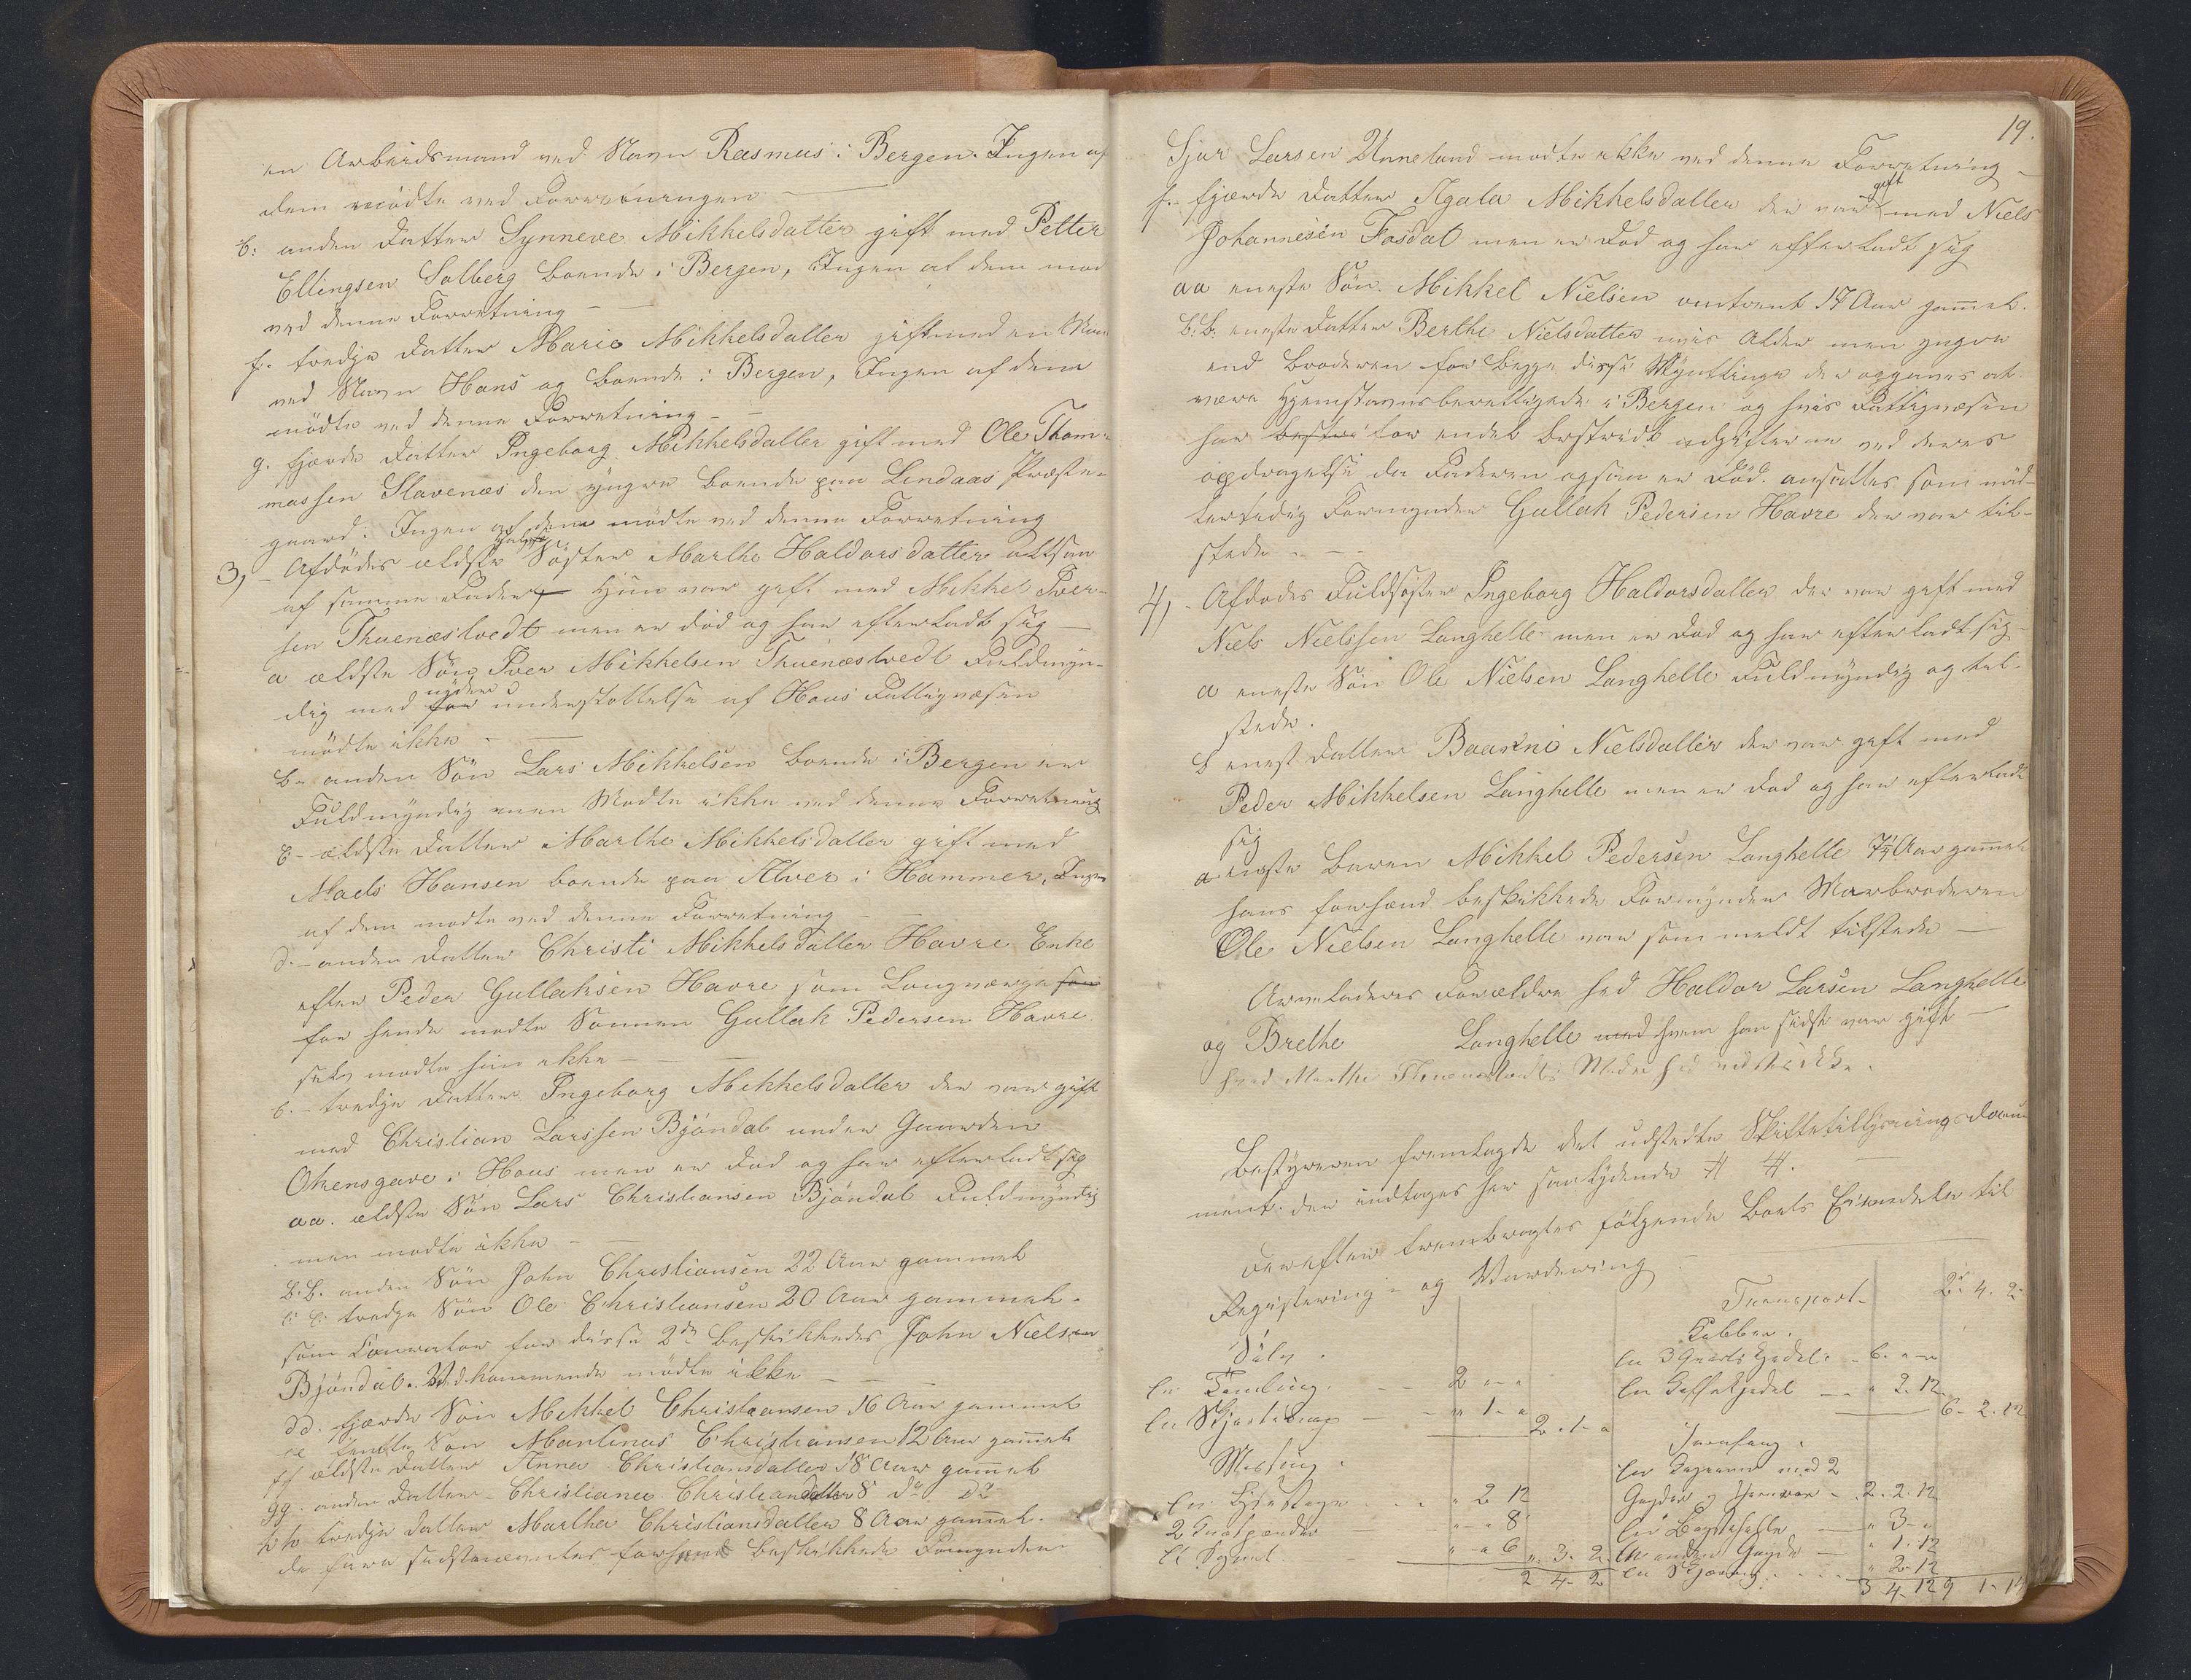 en Arbeidsmand ved Navn Rasmus i Bergen. Ingen af
dem mødte ved Forretningen —
b: anden Datter Synneve Mikkelsdatter gift med Petter
Ellingsen Solberg boende i Bergen, Ingen af dem mød
ved denne Forretning —
f. tredje Datter Marie Mikkelsdatter gift med en Man
ved Navn Hans og boende i Bergen, Ingen af dem
mødte ved denne Forretning —
g. fjerde Datter Ingeborg Mikkelsdatter gift med Ole Thom-
massen Slavenæs den yngre boende paa Lindaas Præste-
gaard. Ingen af dem mødte ved denne Forretning
3, - Afdødes ældste Søster Marthe Haldorsdatter altsaa
af samme Fader, Hun var gift med Mikkel Iver-
sen Thuenæstvedt men er død og har efterladt sig —
a ældste Søn Iver Mikkelsen Thuenæstvedt Fuldmyn-
dig med for nyder understøttelse af Hous Fattigvæsen
mødte ikke —
b- anden Søn Lars Mikkelsen boende i Bergen er
Fuldmyndig men Mødte ikke ved denne Forretning
c- ældste Datter Marthe Mikkelsdatter gift med
Mads Hansen boende paa Alver i Hammer, Ingen
af dem mødte ved denne Forretning —
d.- anden Datter Christi Mikkelsdatter Havre Enke
efter Peder Gullaksen Havre som Laugværge for
for hende mødte Sønnen Gullak Pedersen Havre
selv mødte hun ikke —
e.- tredje Datter Ingeborg Mikkelsdatter der var gift
med Christian Larssen Bjøndal under Gaarden
Okensgave i Hous men er død og har efterladt sig
aa. ældste Søn Lars Christiansen Bjøndal Fuldmyndig
men mødte ikke —
b.b. anden Søn John Christiansen 22 Aar gammel
c c tredje Søn Ole Christiansen 20 Aar gammel.
som Curator for disse 2de beskikkedes John Nielsen
Bjøndal. Vedkommende mødte ikke —
dd. fjerde Søn Mikkel Christiansen 16 Aar gammel
ee femte Søn Martinus Christiansen 12 Aar gammel
ff ældste Datter Anna Christiansdatter 18 Aar gammel
gg. anden Datter Christiane Christiansdatter 8 do do
hh tredje Datter Marthe Christiansdatter 8 Aar gammel.
de sidstnævntes forhend beskikkede Formynder
19.
Sjur Larsen Unneland mødte ikke ved denne Forretning —
f.- fjerde Datter Agata Mikkelsdatter der var gift med Niels
Johannesen Fosdal men er Død og har efterladt sig
aa eneste Søn Mikkel Nielsen omtrent 17 Aar gammel.
b.b. eneste Datter Berthe Nielsdatter uvis Alder men yngre
end Broderen for begge disse Myntlinge der opgaves at
være Hjemstavnsberettigede i Bergen og hvis Fattigvæsen
har bestri for endel bestridt udgifterne ved deres
opdragelse da Faderen ogsaa er Død. ansattes som mid-
lertidig Formynder Gullak Pedersen Havre der var til-
stede —
4, - Afdødes Fuldsøster Ingeborg Haldorsdatter der var gift med
Niels Nielssen Langhelle men er Død og har efterladt sig
a eneste Søn Ole Nielsen Langhelle Fuldmyndig og til-
stede.
b enest Datter Nielsdatter der var gift med
Peder Mikkelsen Langhelle men er Død og har efterladt
sig
a eneste Barn Mikkel Pedersen Langhelle Aar gammel
hans forhænd beskikkede Formynder Morbroderen
Ole Nielsen Langhelle var som meldt tilstede —
Arveladeres Forældre hed Haldor Larsen Langhelle
og Brethe Langhelle med hvem han sidst var gift —
hvad Marthe Thuenæstvedts Moder hed vidstes ikke.
Bestyreren fremlagde det udstedte Skiftetillysningsdocu-
ment. der indtages her saalydende # #. —
Derefter frembragtes følgende Boets Eiendele til
Registering- og Vurdering —
Sølv.
En Tomling. - - 2 " "
En — " 1 - "
2 - 1 - "
Messing.
En Lysestage - - " 2 12
2 — " - " 8
" - " 6 " 3 - 2
2 4 - 2
Transport - 2 - 4 - 2
Kobber.
En 3 Qvarts Kedel - 6 " "
En Kaffekjedel — " 2. 12
6 - 2. 12
Jernfang.
En med 2
Gryder og - 2. 2. 12
En — " 3 - "
En anden Gryde — " 1. 12
En - - - " 2. 12
3 4. 12 9 1 - 12